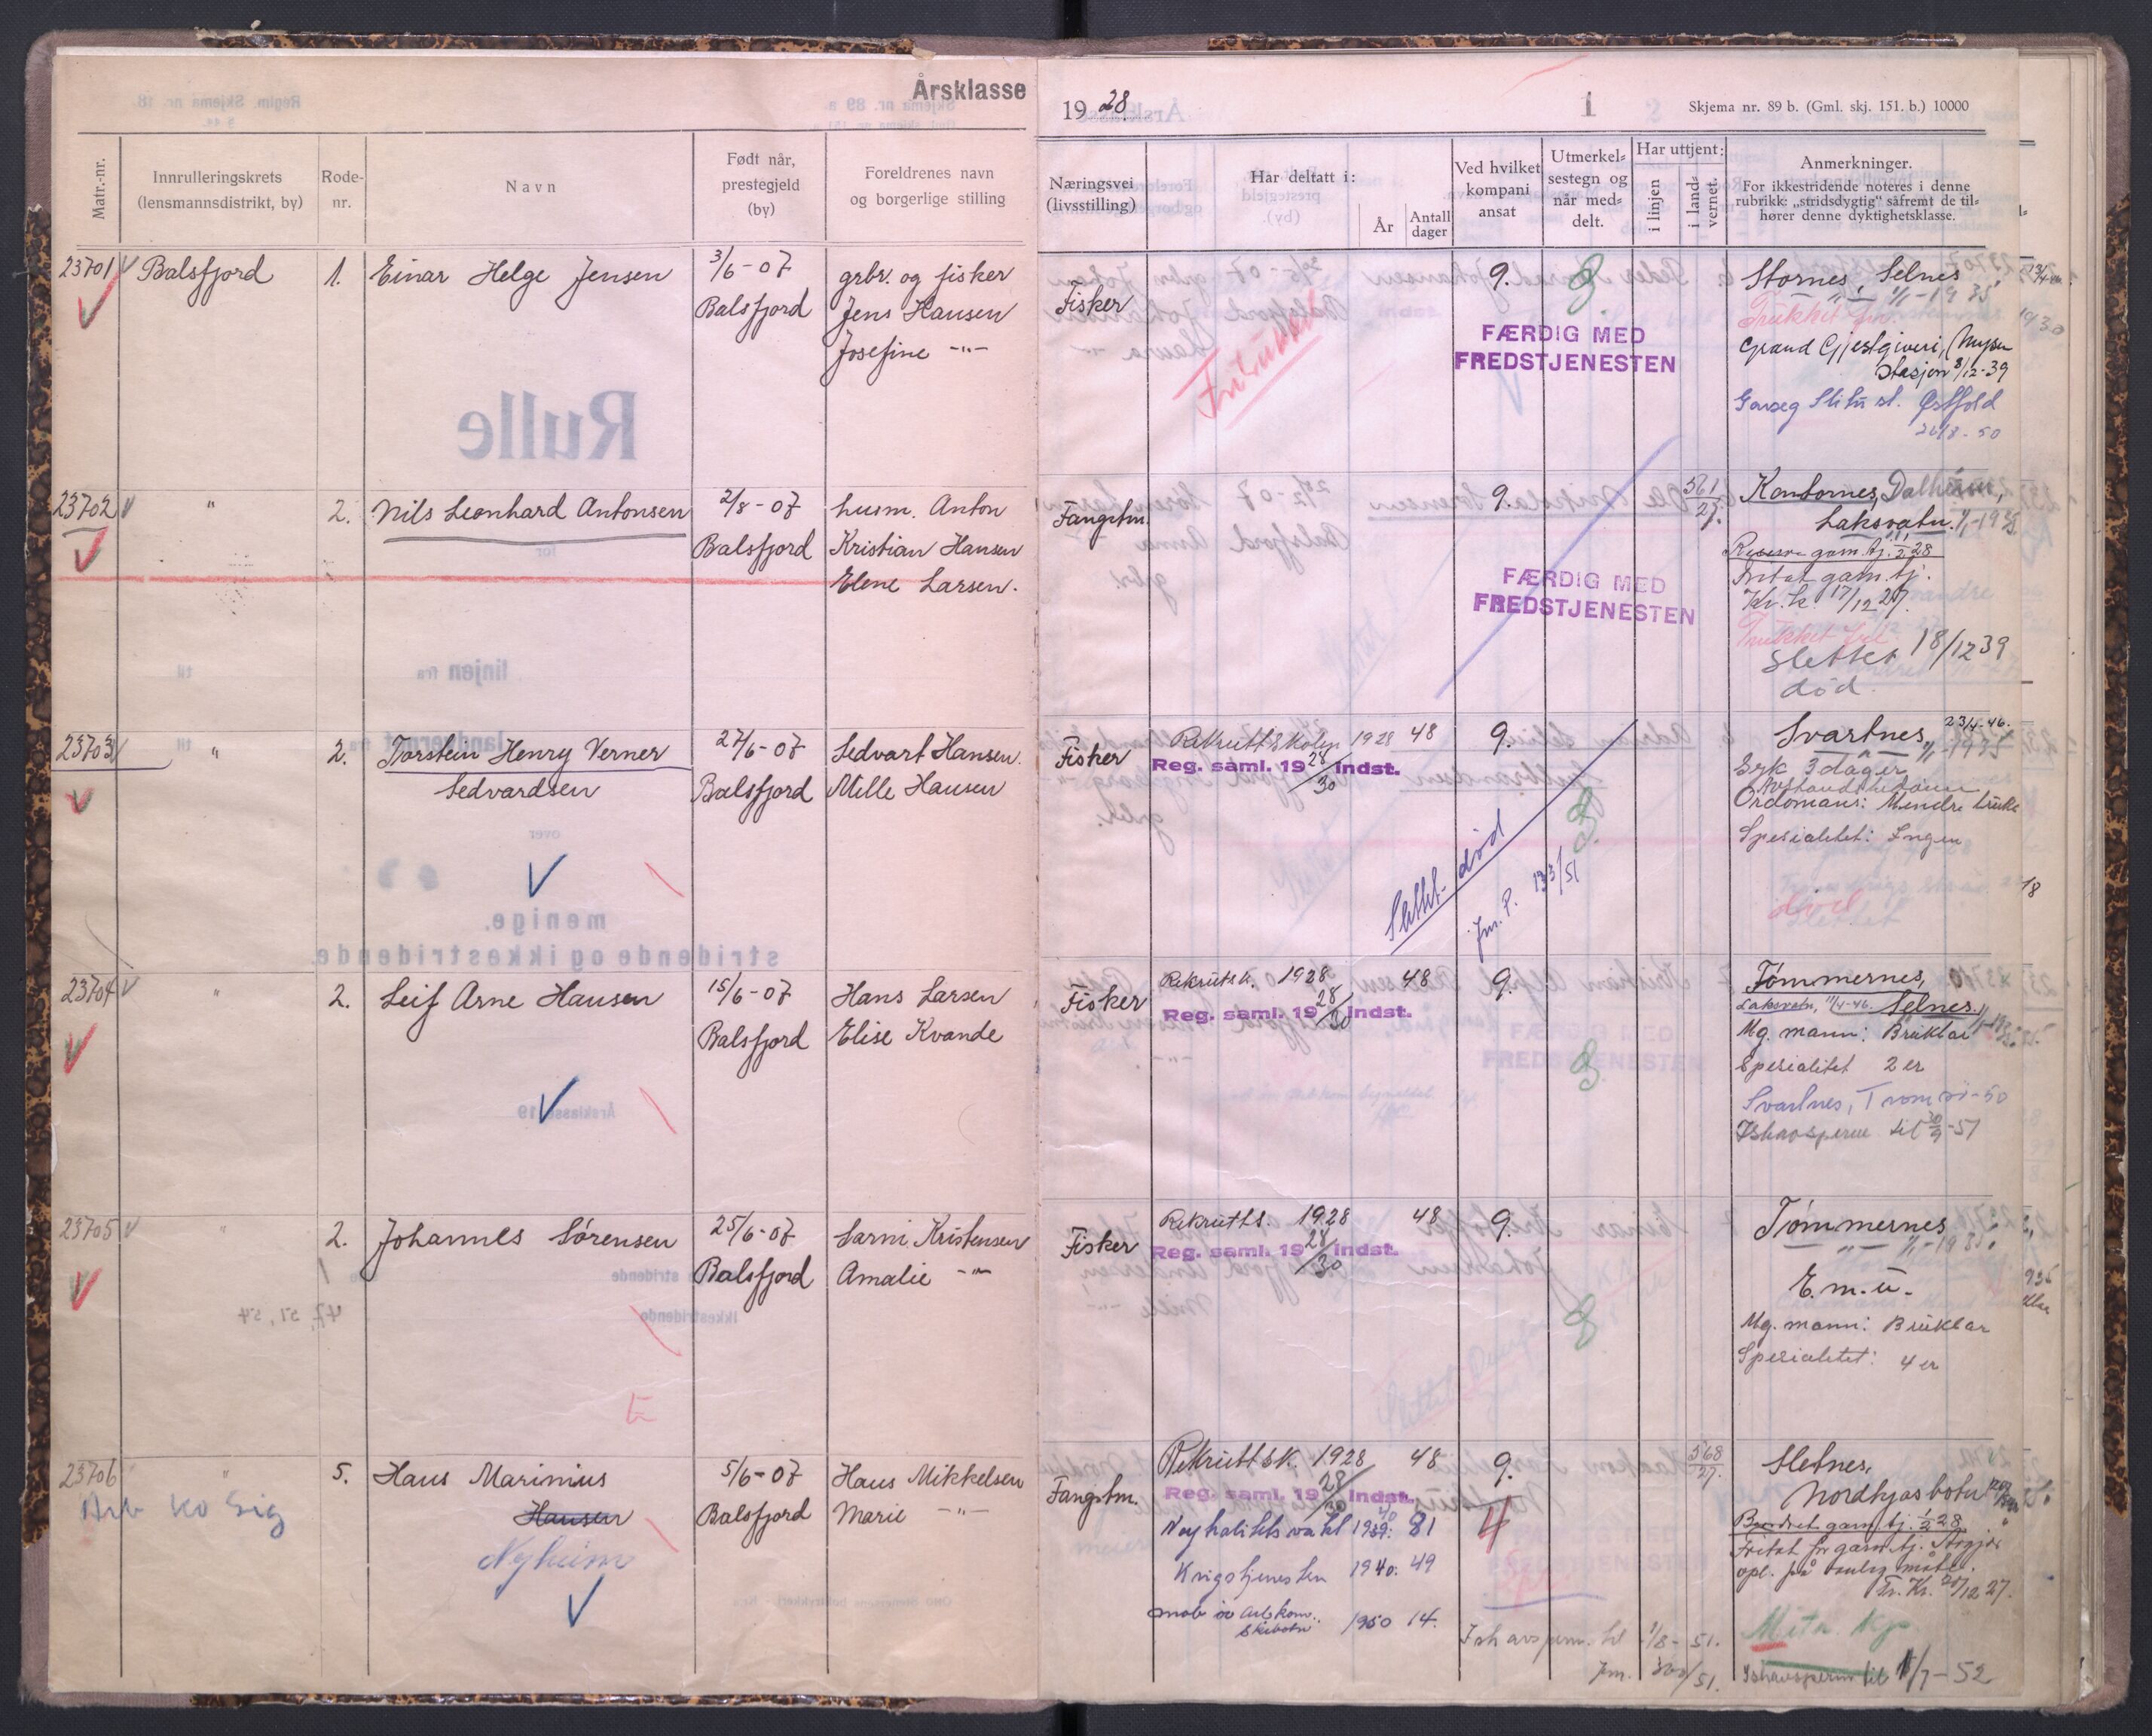 Årsklasse
1928.
1
Skjema nr. 89 b. (Gml. skj. 151. b.) 10000
Matr.-nr.
Innrulleringskrets
(lensmannsdistrikt, by)
Rode-
nr.
Navn
Født når,
prestegjeld
(by)
Foreldrenes navn
og borgerlige stilling
Næringsvei
(livsstilling)
Har deltatt i:
År
Antall
dager
Ved hvilket
kompani
ansat
Utmerkel-
sestegn og
når med-
delt.
Har uttjent:
i linjen
i land-
vernet.
Anmerkninger.
For ikkestridende noteres i denne
rubrikk: „stridsdygtig" såfremt de til-
hører denne dyktighetsklasse.
23701 v
Balsfjord
1.
Einar Helge Jensen
3/6-07
Balsfjord
grbr. og fisker
Jens Hansen
Josefine -"-
Fisker
9.
FÆRDIG MED
FREDSTJENESTEN
Stornes, Selnes
1/1-1935
Grand Gjestgiveri, Mysen
stasjon 8/12-39
st. Østfold
26/8-50
23702 v
"
2.
Nils Leonhard Antonsen
2/8-07
Balsfjord
husm. Anton
Kristian Hansen
Elene Larsen.
Fangstm.
9.
561
27.
FÆRDIG MED
FREDSTJENESTEN
Kantornes,
Laksvatn. 1/1-1935
garn. tj. 1/2 28
Fritat garn. tj.
Kr. k. 17/12 27.
slettet 18/12 39
død.
23703
"
2.
Torstein Henry Verner
Sedvardsen
27/6-07
Balsfjord
Sedvart Hansen.
Melle Hansen
Fisker
Rekruttskolen 1928 48
Reg. saml. 19 28/30 indst.
9.
Slettet død
Jnr. P. 133/51
23/4-46.
Svartnes
1/1-1935
Syk 3 dager
Ordonans: Mindre brukb
Spesialitet: Ingen
død
23704 v
"
2.
Leif Arne Hansen
15/6-07
Balsfjord
Hans Larsen
Elise Kvande
Fisker
Rekrutsk. 1928 48
Reg. saml. 19 28/30 indst.
9.
Tømmernes,
Laksvatn, 11/4-46. Selnes.
Mg. mann: Brukbar
Spesialitet 2er
Svartnes,
Ishavsperm til 30/9-51
23705 v
"
2.
Johannes Sørensen
25/6-07
Balsfjord
Sørni Kristensen
Amalie -"-
Fisker
Rekrutts. 1928 48
Reg. saml. 19 28/30 indst.
9.
Tømmernes
1/1-1935
E.m.u.
Mg. mann: Brukbar
Spesialitet: 4 er
23706
"
5.
Hans Marinius
Hansen
Nyheim
Arb ko Sig
5/6-07
Balsfjord
Hans Mikkelsen
Marie -"-
Fangstm.
Rekruttsk. 1928 48
Reg. saml. 19 28/30 indst.
Nøytralitetsvakt 1939: 81
Krigstjenesten 1940: 49
mob. Arb.kom.. 1950 14.
Skibotn
9.
4
568
27.
Ishavsperm. til 1/8-51.
Jnr. 300/51.
Sletnes,
Nordkjosbotn
garn. tj. 1/2 28
Fritat for garn. tj.
opl. på vanlig måte.
Kr. 20/12 27.
Ishavsperm til 1/7-52